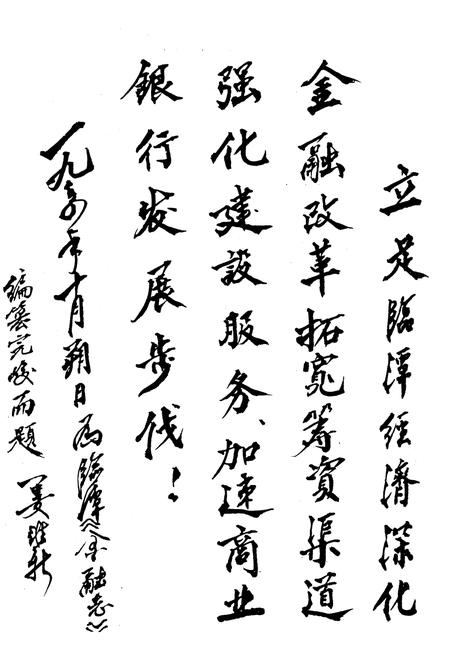 立足臨潭經濟深化
金融改革拓寬筹資渠道
强化建設服务、加速商业
銀行发展步伐！
一九年十月朔日为臨潭《金融志》
編纂完竣而题 姜